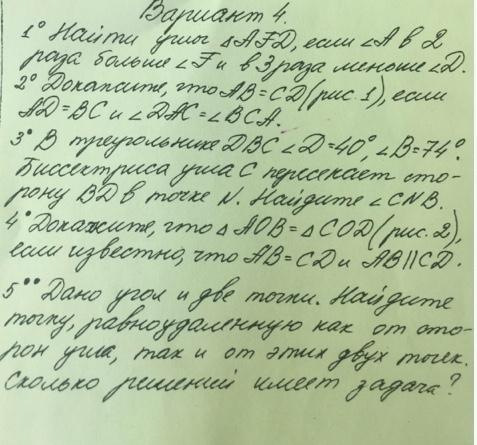 Вариант 4.
1° Найти углы △AFD, если ∠A в 2
раза больше ∠F и в 3 раза меньше ∠D.
2° Докажите, что AB=CD (рис. 1), если
AD=BC и ∠DAC=∠BCA.
3° В треугольнике DBC ∠D=40°, ∠B=74°.
Биссектриса угла C пересекает сто-
рону BD в точке N. Найдите ∠CNB.
4° Докажите, что △AOB=△COD (рис. 2),
если известно, что AB=CD и AB||CD.
5°° Дано угол и две точки. Найдите
точку, равноудаленную как от сто-
рон угла, так и от этих двух точек.
Сколько решений имеет задача?